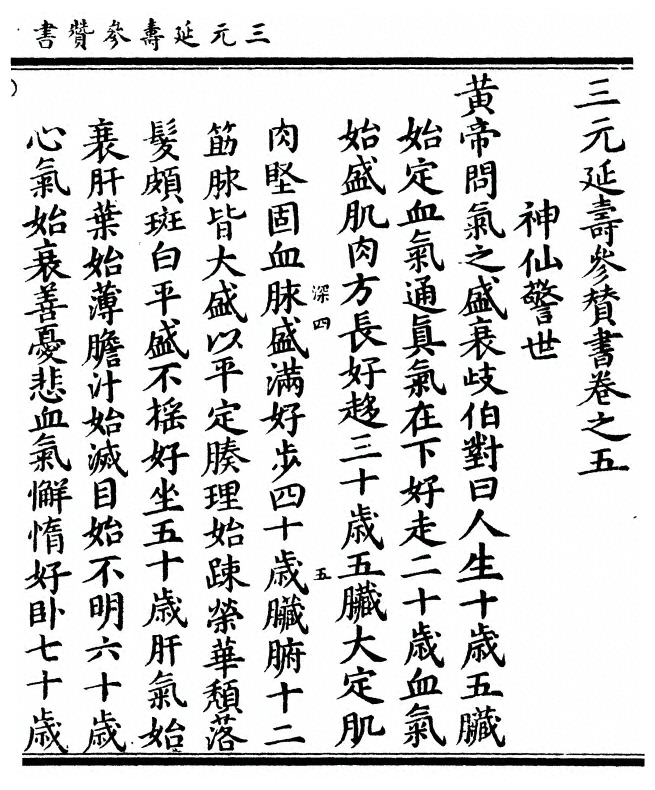 三元延壽參贊書
三元延壽參贊書卷之五
神仙警世
黃帝問氣之盛衰歧伯對曰人生十歲五臟
始定血氣通眞氣在下好走二十歲血氣
始盛肌肉方長好趍三十歲五臟大定肌
肉堅固血脉盛滿好步四十歲臟腑十二
深四
五
筋脉皆大盛以平定腠理始踈榮華頹落
髮頗斑白平盛不搖好坐五十歲肝氣始
衰肝葉始薄膽汁始滅目始不明六十歲
心氣始衰善憂悲血氣懈惰好卧七十歲